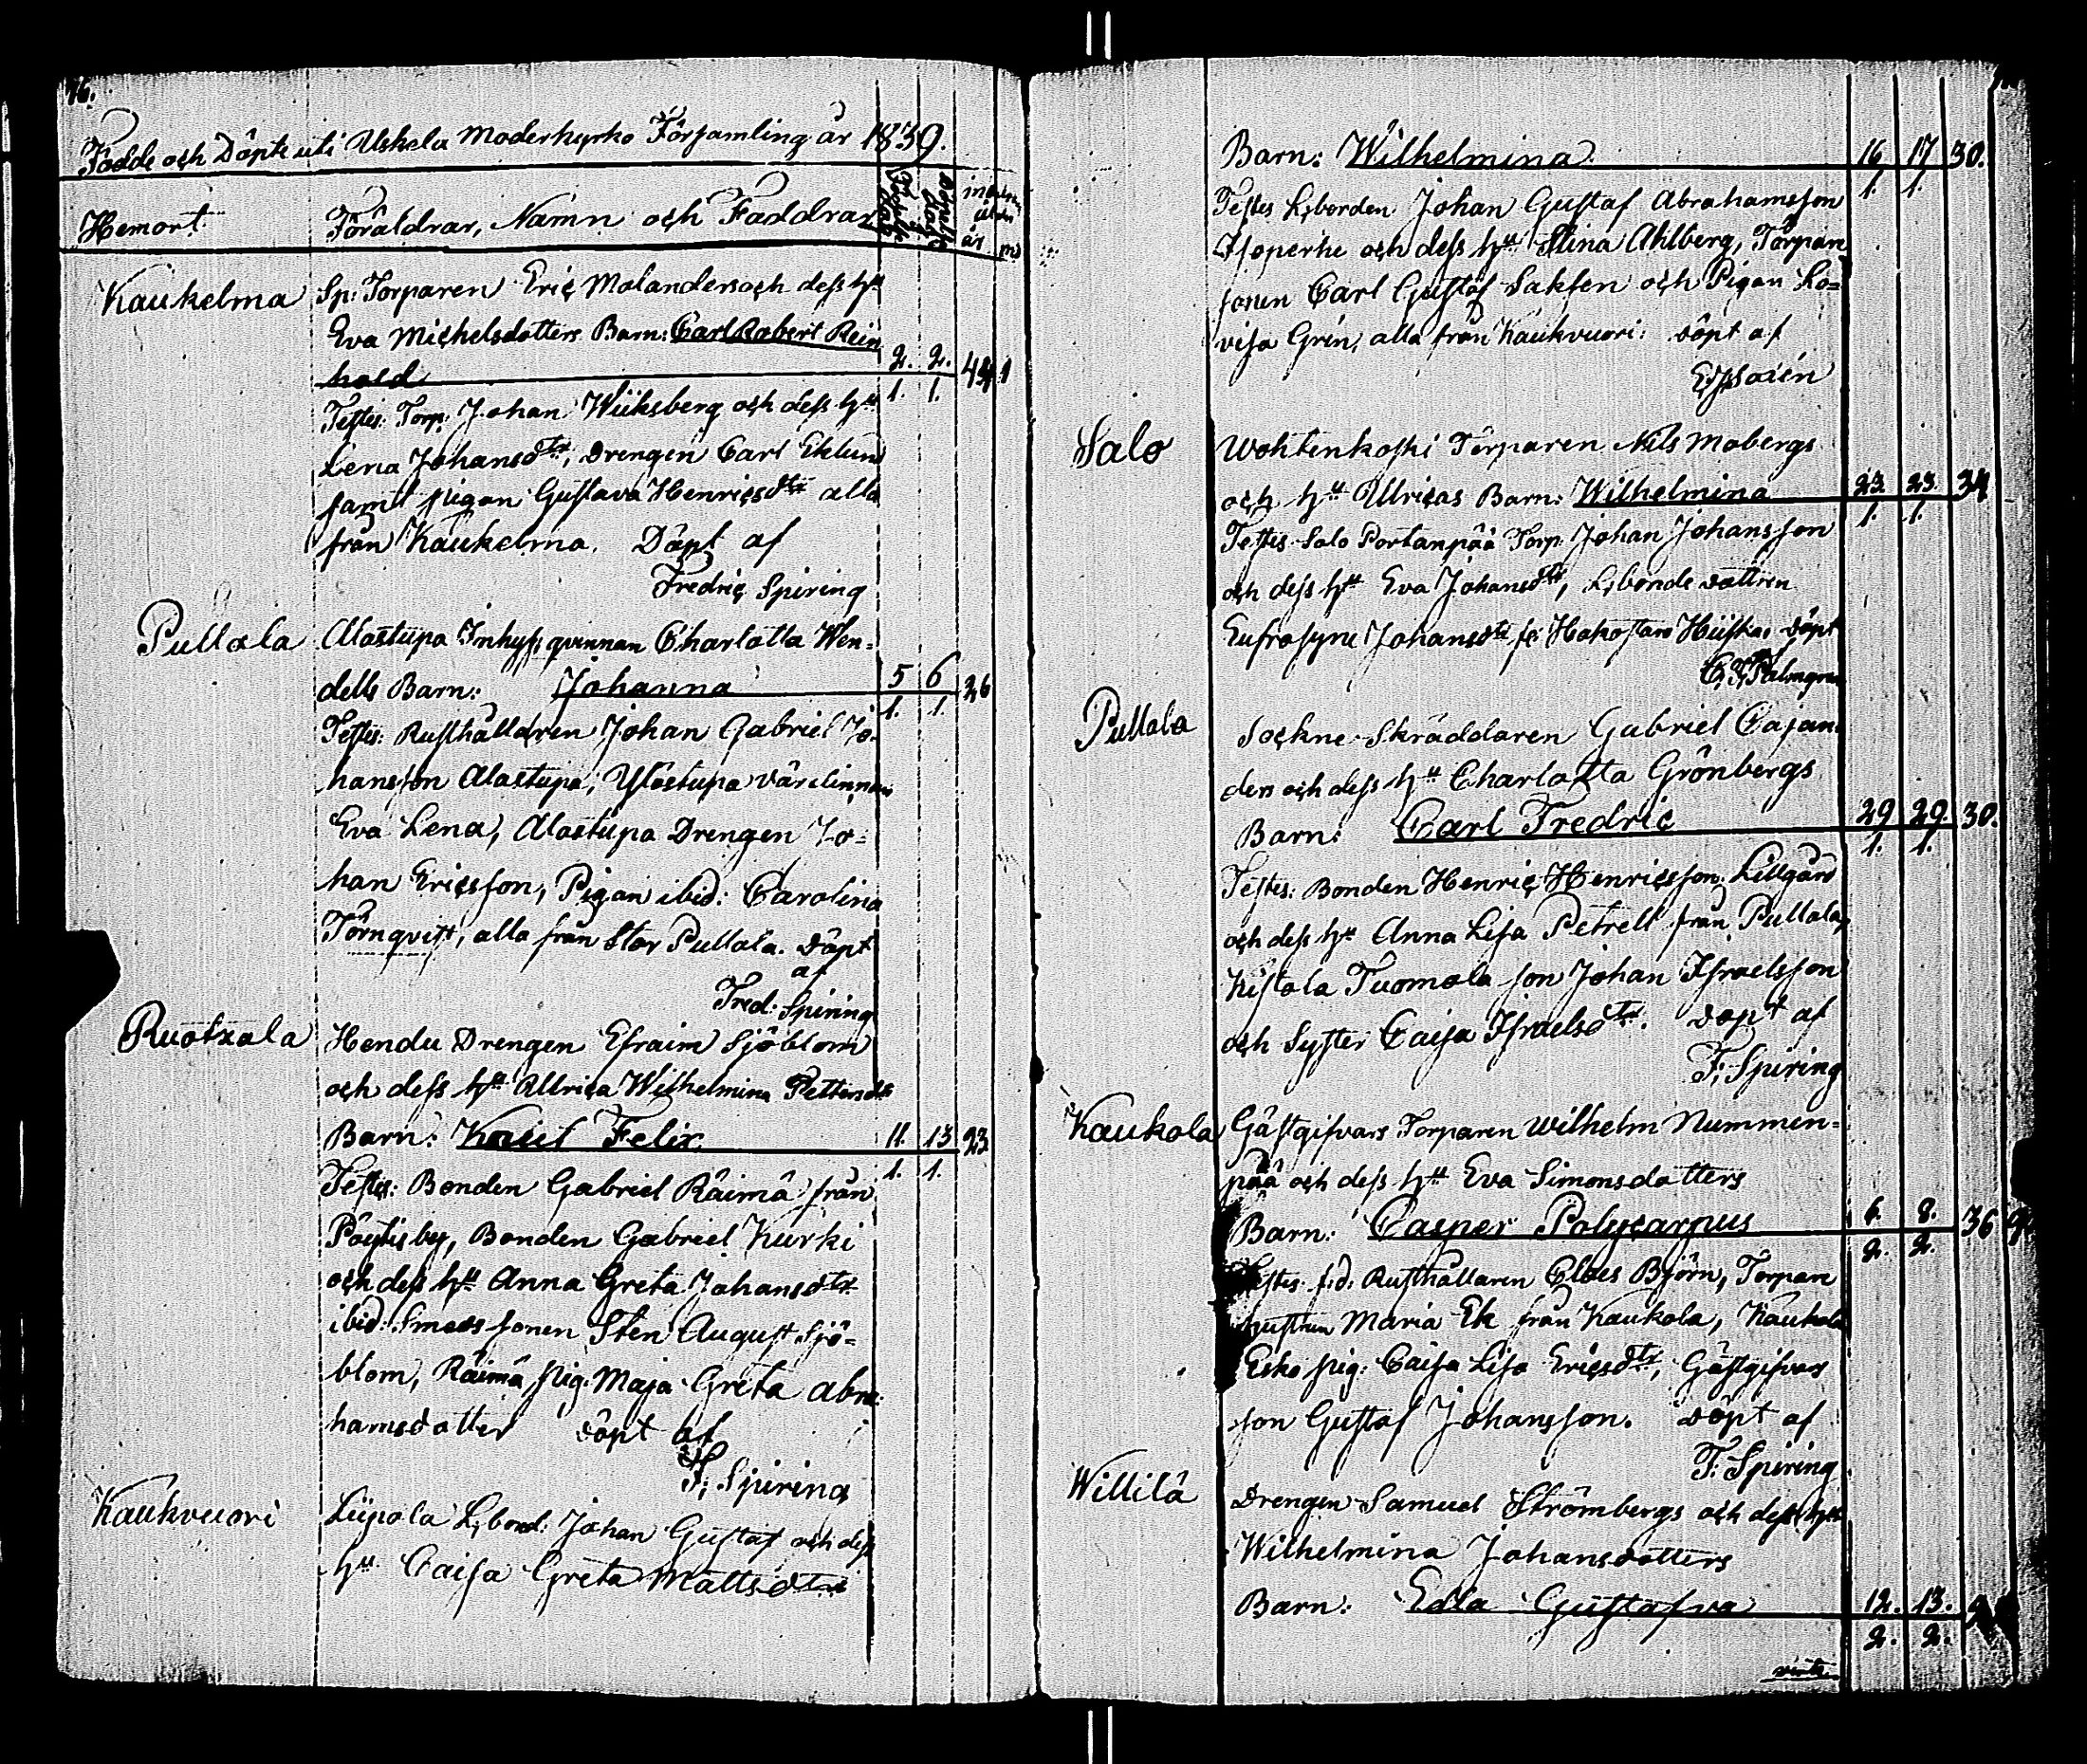 76.
Födde och Döpte uti Uskela Moderkyrko Församling år 1839.
Hemort. Föräldrar, Namn och Faddrar
år m
Kaukelma Sp: Torparen Eric Molanders och dess hu
Eva Michelsdotters Barn: Carl Robert Rein
hold 2. 2.
1. 1.
Testes: Torp. Johan Wiiksberg och dess hu
Lena Johansdtr, Drengen Carl Eklund
samt pigan Gustava Henricsdtr alla
från Kaukelma. Döpt af
Fredric Spiring
Pullola Alastupa Inhyss qvinnan Charlotta Wen=
dells Barn: Johanna 5 6 26
1. 1.
Testes: Rusthållaren Johan Gabriel Jo-
hansson Alastupa, Ylöstupa värdinnan
Eva Lena, Alastupa Drengen Jo=
han Ericsson, Pigan ibid: Carolina
Törnqvist, alla från Stor Pullola. Döpt
af
Fred: Spiring
Ruotxala Hendu Drengen Efraim Sjöblom
och dess hu Ullrica Wilhelmina Pettersdtr
Barn: Felix 11 13 23
1. 1.
Testes: Bonden Gabriel Räimä från
Pöytisby, Bonden Gabriel Kurki
och dess hu Anna Greta Johansdtr
ibid: Smeds sonen Sten August Sjö=
blom, Räimä pig. Maja Greta Abra:
hamsdotter döpt af
F: Spiring
Kaukvuori Liipola L,bond: Johan Gustaf och dess
hu Caisa Greta Mattsdtr
Barn: Wilhelmina 16 17 30.
1. 1.
Testes L,bonden Johan Gustaf Abrahamsson
Isoperhe och dess hu Stina Ahlberg, Torpare
sonen Carl Gustaf Saksen och Pigan Lo=
visa Grén, alla från Kaukvuori: döpt af
Salo Wohtenkoski Torparen Nils Mobergs
och hu Ullricas Barn: Wilhelmina 23. 23. 34
1. 1.
Testes Salo Portanpää Torp. Johan Johansson
och dess hu Eva Johansdtr, L,bonde dottren
Eufrosyne Johansdtr fr: Hakostaro Hiiska, döpt
C. F. Palmgren
Pullola Sockne-Skräddaren Gabriel Cajan:
ders och dess hu Charlotta Grönbergs
Barn: Carl Fredric 29 29. 30.
1. 1.
Testes: Bonden Henric Henricsson Lillgård
och dess hu Anna Lisa Petrell från Pullola,
Kistola Tuomola son Johan Israelsson
och Syster Caisa Israelsdtr. döpt af
F; Spiring
Kaukola Gästgifvars Torparen Wilhelm Nummen=
pää och dess hu Eva Simonsdotters
Barn: Casper Polycarpus 6. 8. 36
2. 2.
Testes: f:d: Rusthållaren Claes Björn, Torpare
hustrun Maria Ek från Kaukola, Kaukola
Esko pig: Caisa Lisa Ericsdtr, Gästgifvars
son Gustaf Johansson. döpt af
F: Spiring
Willilä Drengen Samuel Strömbergs och dess hu
Wilhelmina Johansdotters
Barn: Edla Gustafva 12. 13.
2. 2.
verte